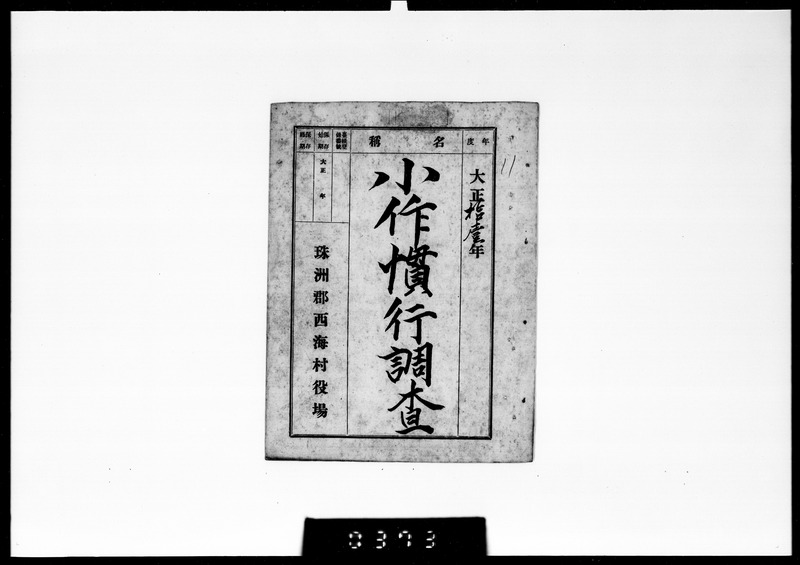 年度
大正拾壹年
11
名稱
小作慣行調査
保存始期
大正 年
保存
珠洲郡西海村役場
0373